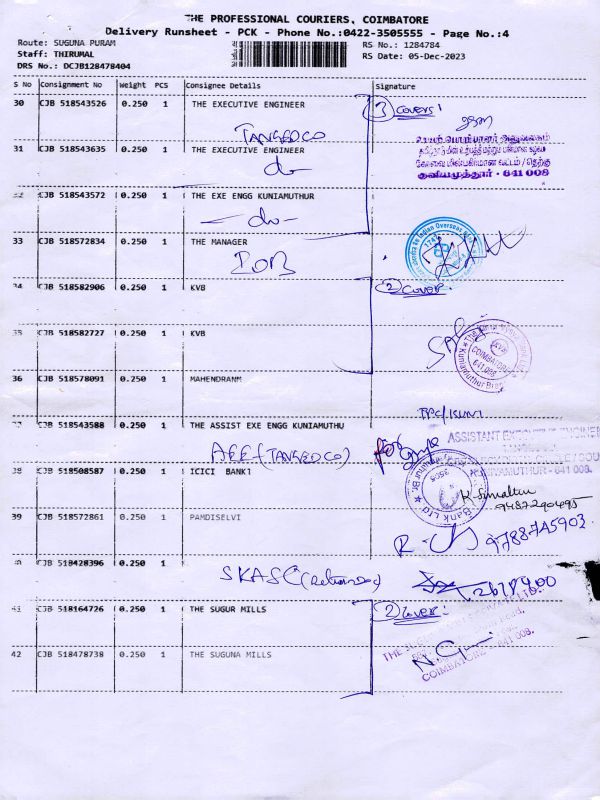 THE PROFESSIONAL COURIERS, COIMBATORE
Delivery Runsheet - PCK - Phone No.:0422-3505555 - Page No.:4
Route: SUGUNA PURAM
RS No.: 1284784
Staff: THIRUMAL
RS Date: 05-Dec-2023
DRS No.: DCJB128478404
S No Consignment No Weight PCS Consignee Details Signature
30 CJB 518543526 0.250 1 THE EXECUTIVE ENGINEER
3 covers
TANGEDCO
31 CJB 518543635 0.250 1 THE EXECUTIVE ENGINEER
do
குனியமுத்தூர் - 641 008
32 CJB 518543572 0.250 1 THE EXE ENGG KUNIAMUTHUR
-do-
33 CJB 518572834 0.250 1 THE MANAGER
IOB
Indian Overseas
34 CJB 518582906 0.250 1 KVB
2 cover
35 CJB 518582727 0.250 1 KVB
COIMBATORE
641 008
36 CJB 518578091 0.250 1 MAHENDRANM
37 CJB 518543588 0.250 1 THE ASSIST EXE ENGG KUNIAMUTHU
AEE (TANGEDCO)
ASSISTANT EXECUTIVE ENGINEER
KUNIAMUTHUR - 641 008.
38 CJB 518508587 0.250 1 ICICI BANK1
Bank Ltd
9487290495
39 CJB 518572861 0.250 1 PAMDISELVI
9788745903
40 CJB 518428396 0.250 1
SKASC
2678400
41 CJB 518164726 0.250 1 THE SUGUR MILLS
2 cover
42 CJB 518478738 0.250 1 THE SUGUNA MILLS
COIMBATORE - 641 008.